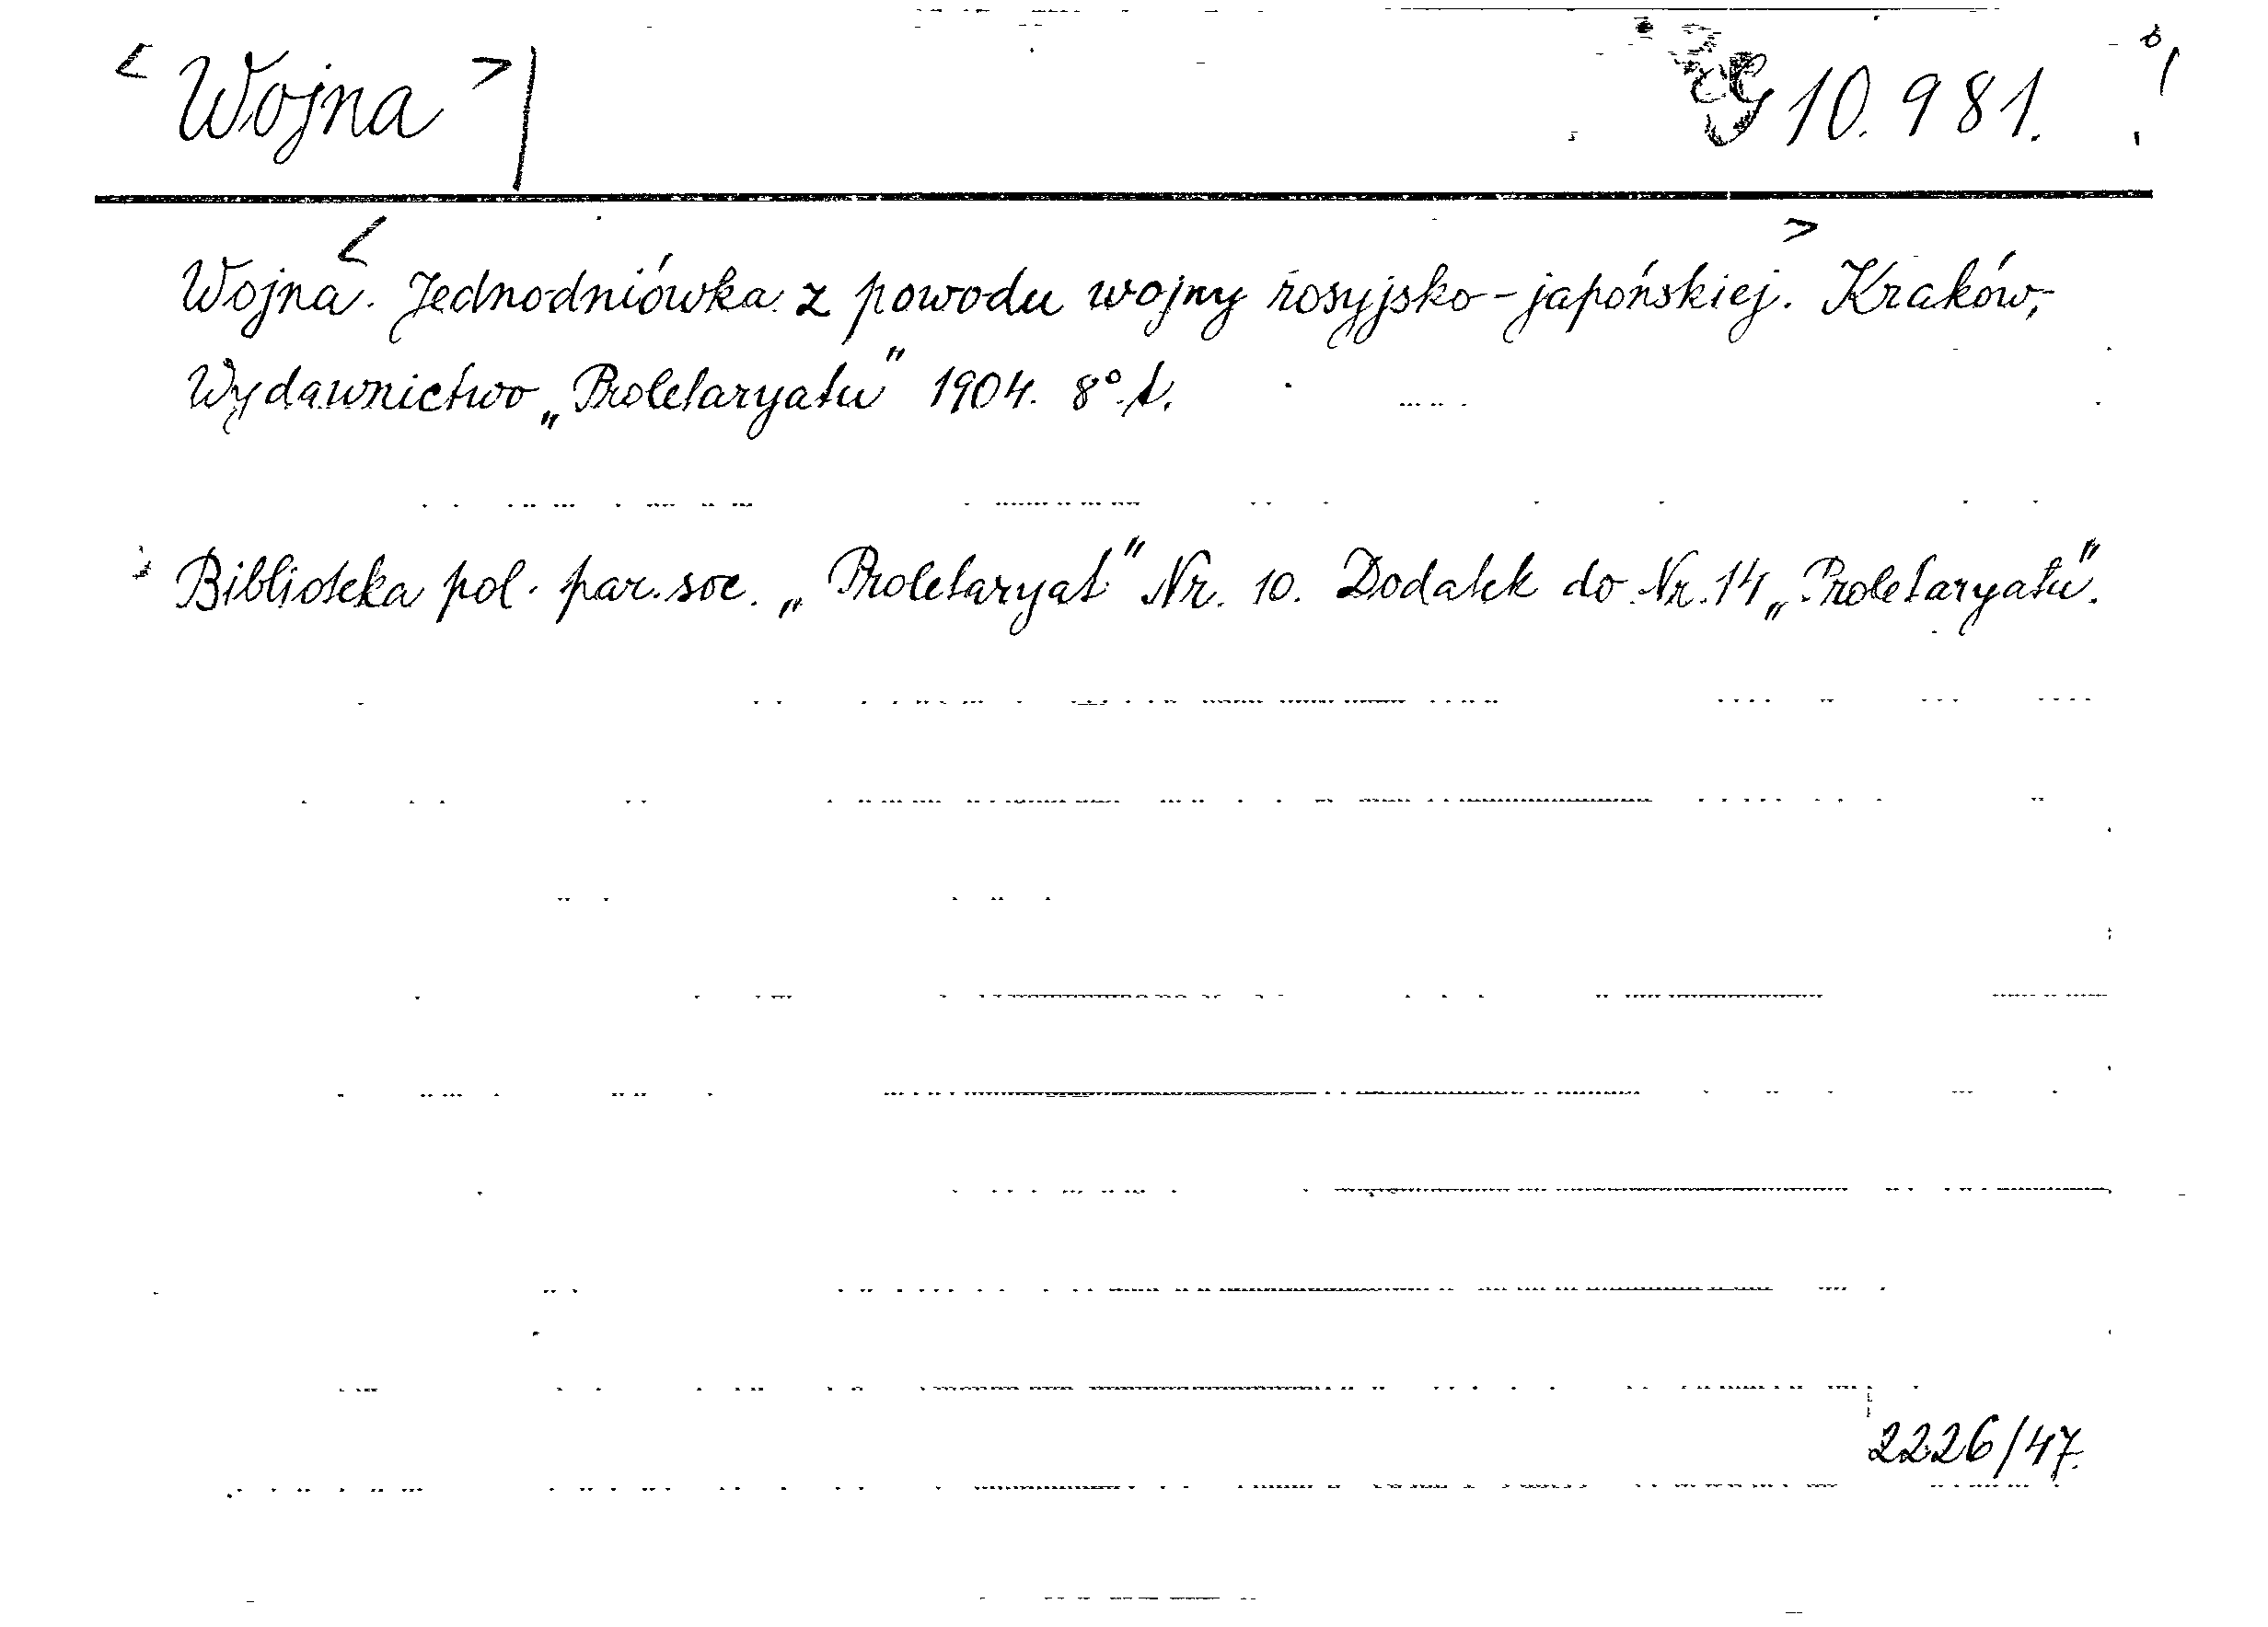 < Wojna > | G 10.981.
Wojna. < Jednodniówka z powodu wojny rosyjsko-japońskiej. > Kraków,
Wydawnictwo „Proletaryatu" 1904. 8°.
Biblioteka pol. par. soc. „Proletaryat" Nr. 10. Dodatek do Nr. 14 „Proletaryatu".
2226/47.